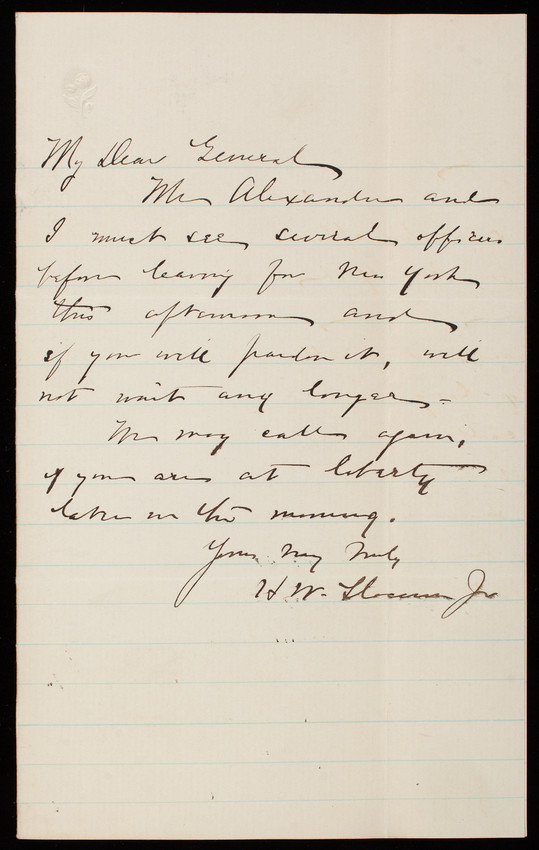 My Dear General
Mr Alexander and
I must see several officers
before leaving for New York
this afternoon and
if you will pardon it, will
not wait any longer -
We may call again,
if you are at liberty
later in the morning.
Yours Very Truly
H W. Slocum Jr